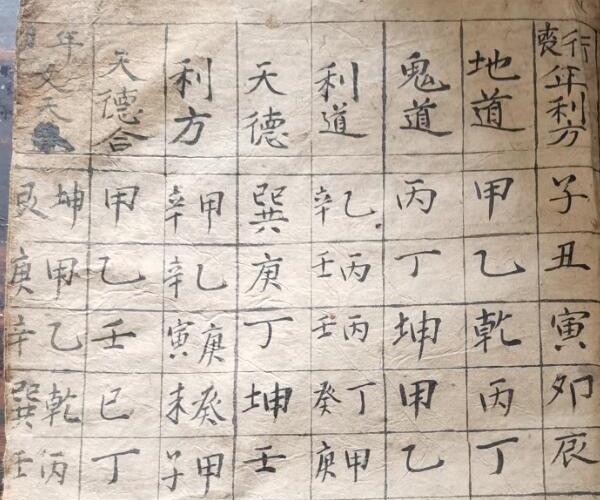 行喪年利方 子 丑 寅 卯 辰
地道 甲 乙 乾 丙 丁
鬼道 丙 丁 坤 甲 乙
利道 乙辛 丙壬 丙壬 丁癸 甲庚
天德 巽 庚 丁 坤 壬
利方 甲辛 乙辛 庚寅 癸未 甲子
天德合 甲 乙 壬 巳 丁
年 天 坤艮 甲庚 乙辛 乾巽 丙壬